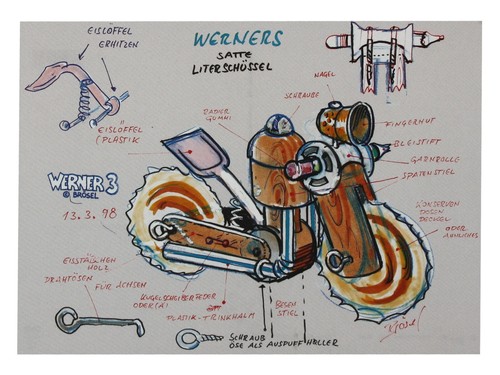 EISLÖFFEL
ERHITZEN
WERNERS
SATTE
LITERSCHÜSSEL
NAGEL
SCHRAUBE
RADIER
GUMMI
FINGERHUT
BLEISTIFT
GARNROLLE
SPATENSTIEL
EISLÖFFEL
(PLASTIK
WERNER 3
© BRÖSEL
13.3.98
KONSERVEN
DOSEN
DECKEL
ODER
ÄHNLICHES
EISSTÄBCHEN
HOLZ
DRAHTÖSEN
FÜR ACHSEN
KUGELSCHREIBERFEDER
ODER (A)
PLASTIK-TRINKHALM
BESEN
STIEL
SCHRAUB
ÖSE ALS AUSPUFFHALTER
Brösel